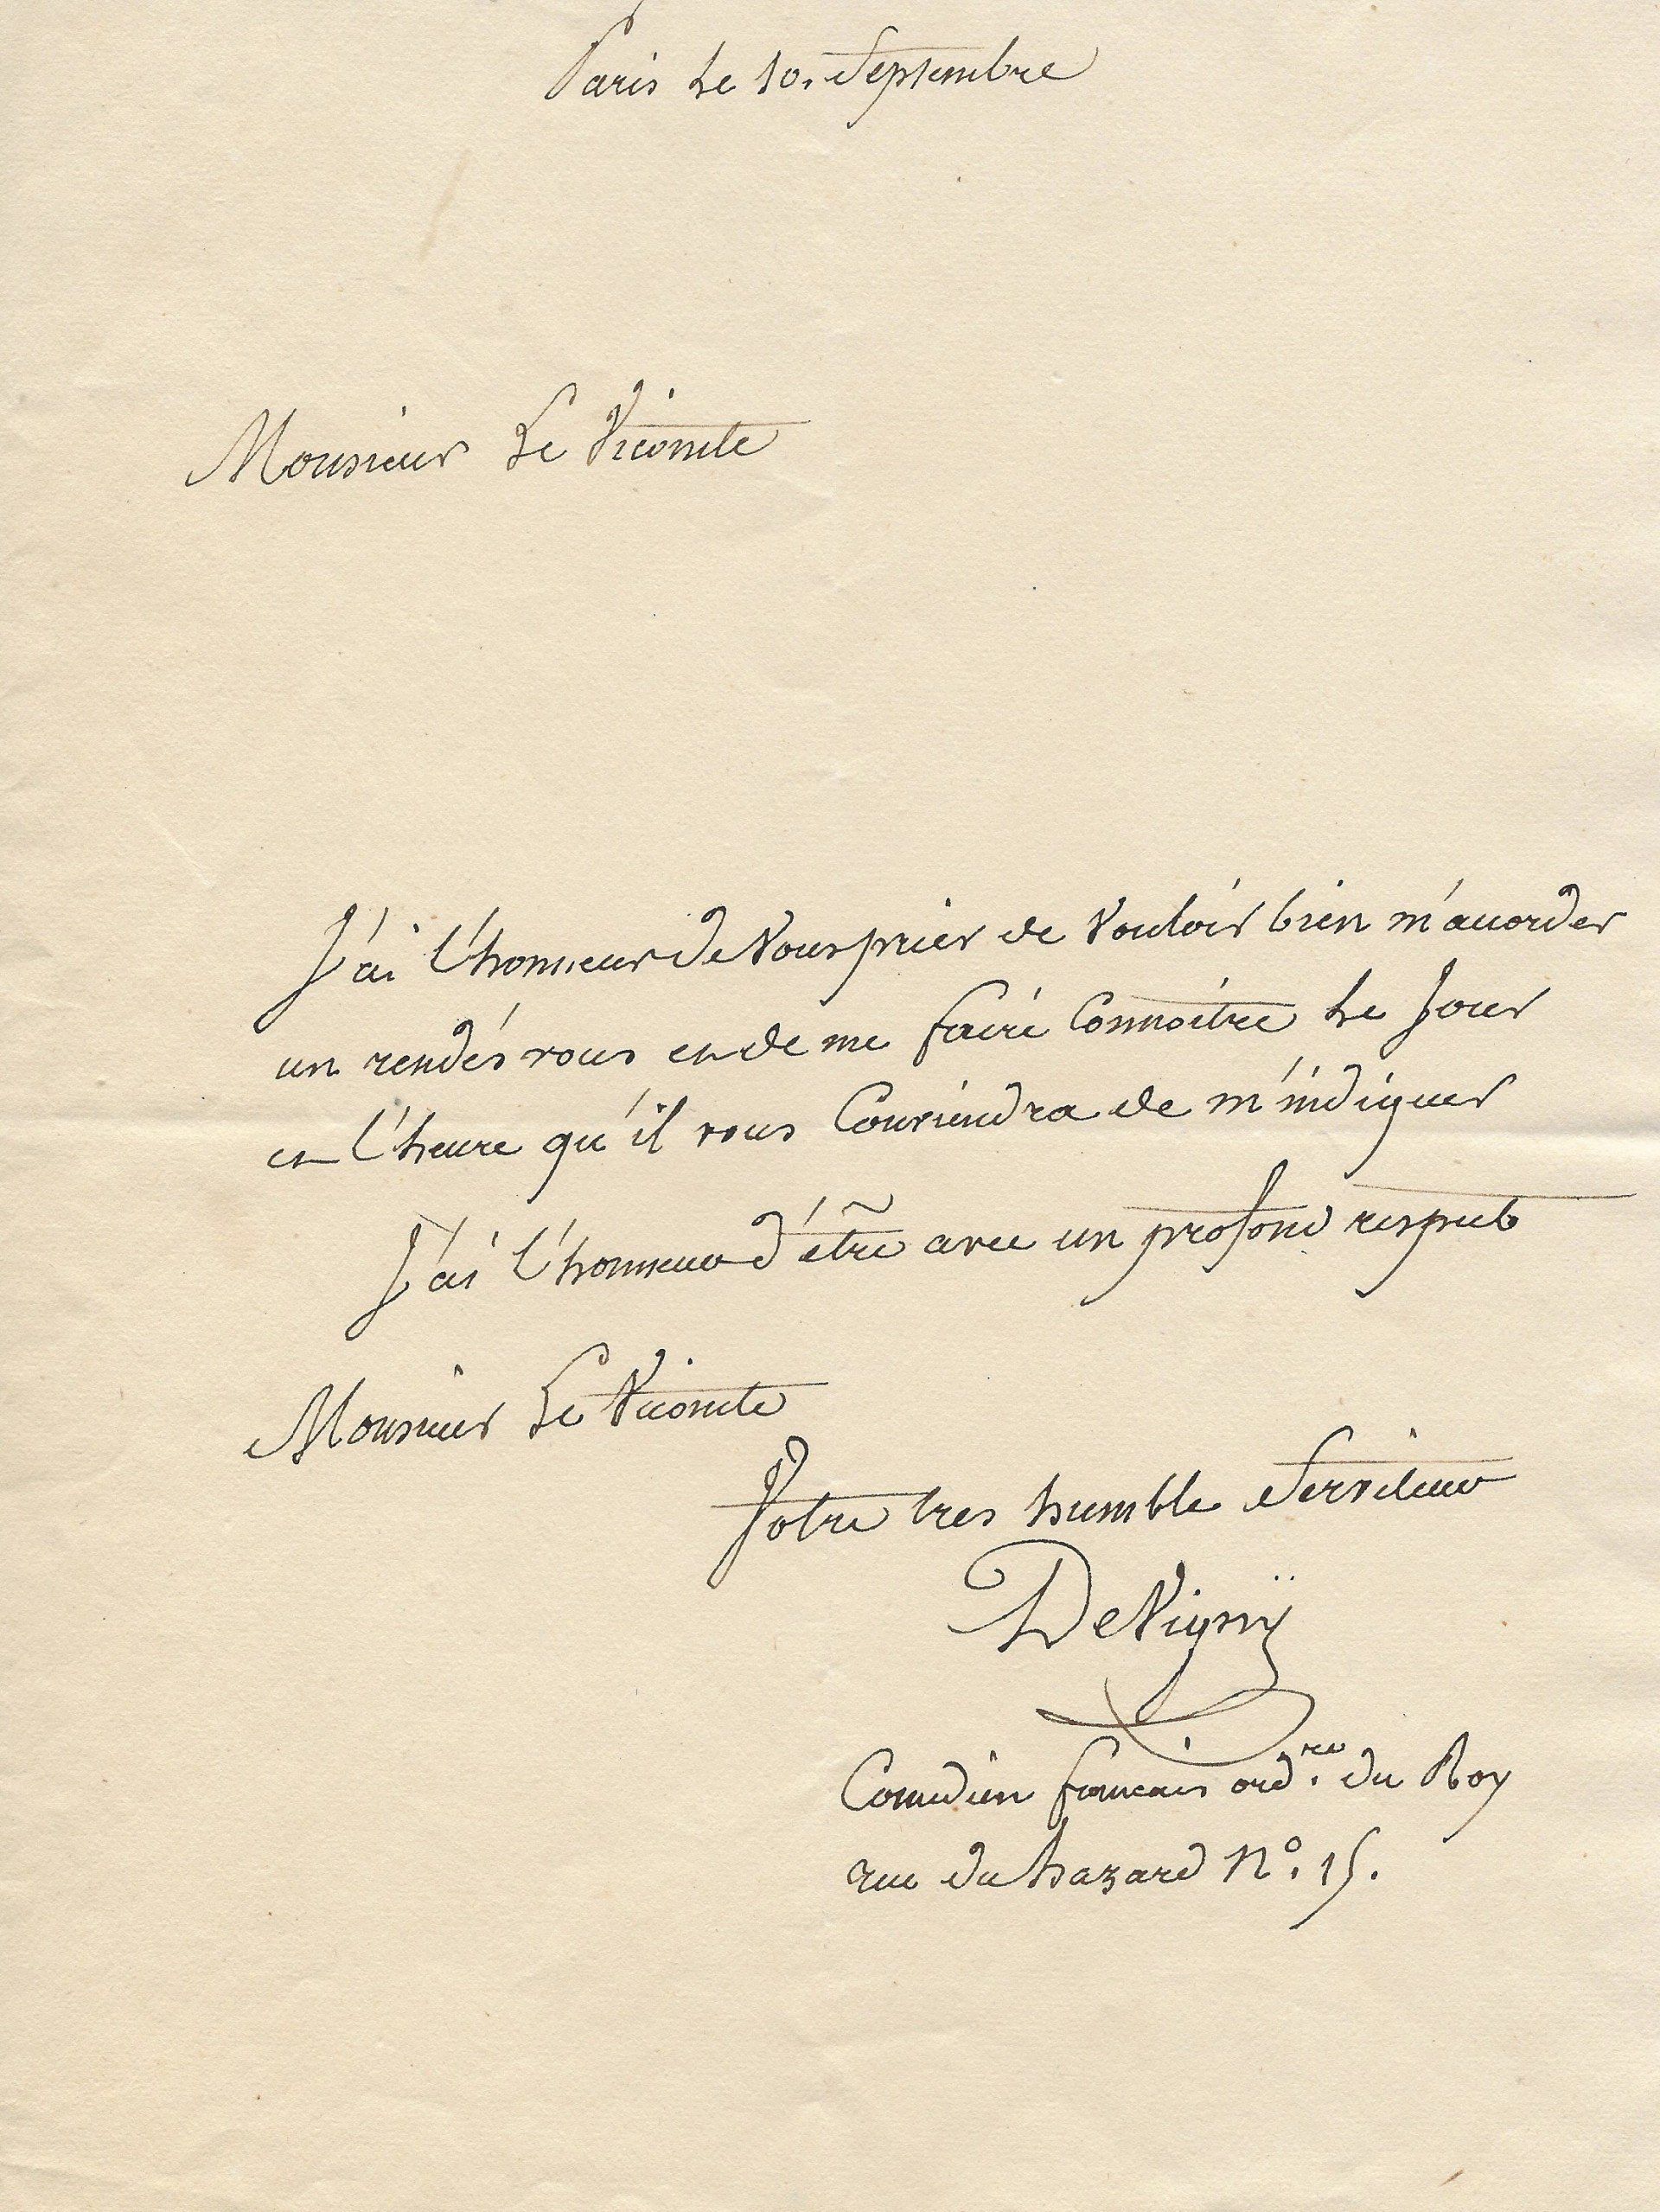 Paris Le 10. Septembre
Monsieur Le Vicomte
J'ai l'honneur de Vous prier de Vouloir bien m'accorder
un rendés vous et de me faire Connoitre Le Jour
et l'heure qu'il vous Conviendra de m'indiquer
J'ai l'honneur d'être avec un profond respect
Monsieur Le Vicomte
Votre tres humble Serviteur
DeVignÿ
Comedien francais ord.re du Roy
rue du hazard N°. 15.